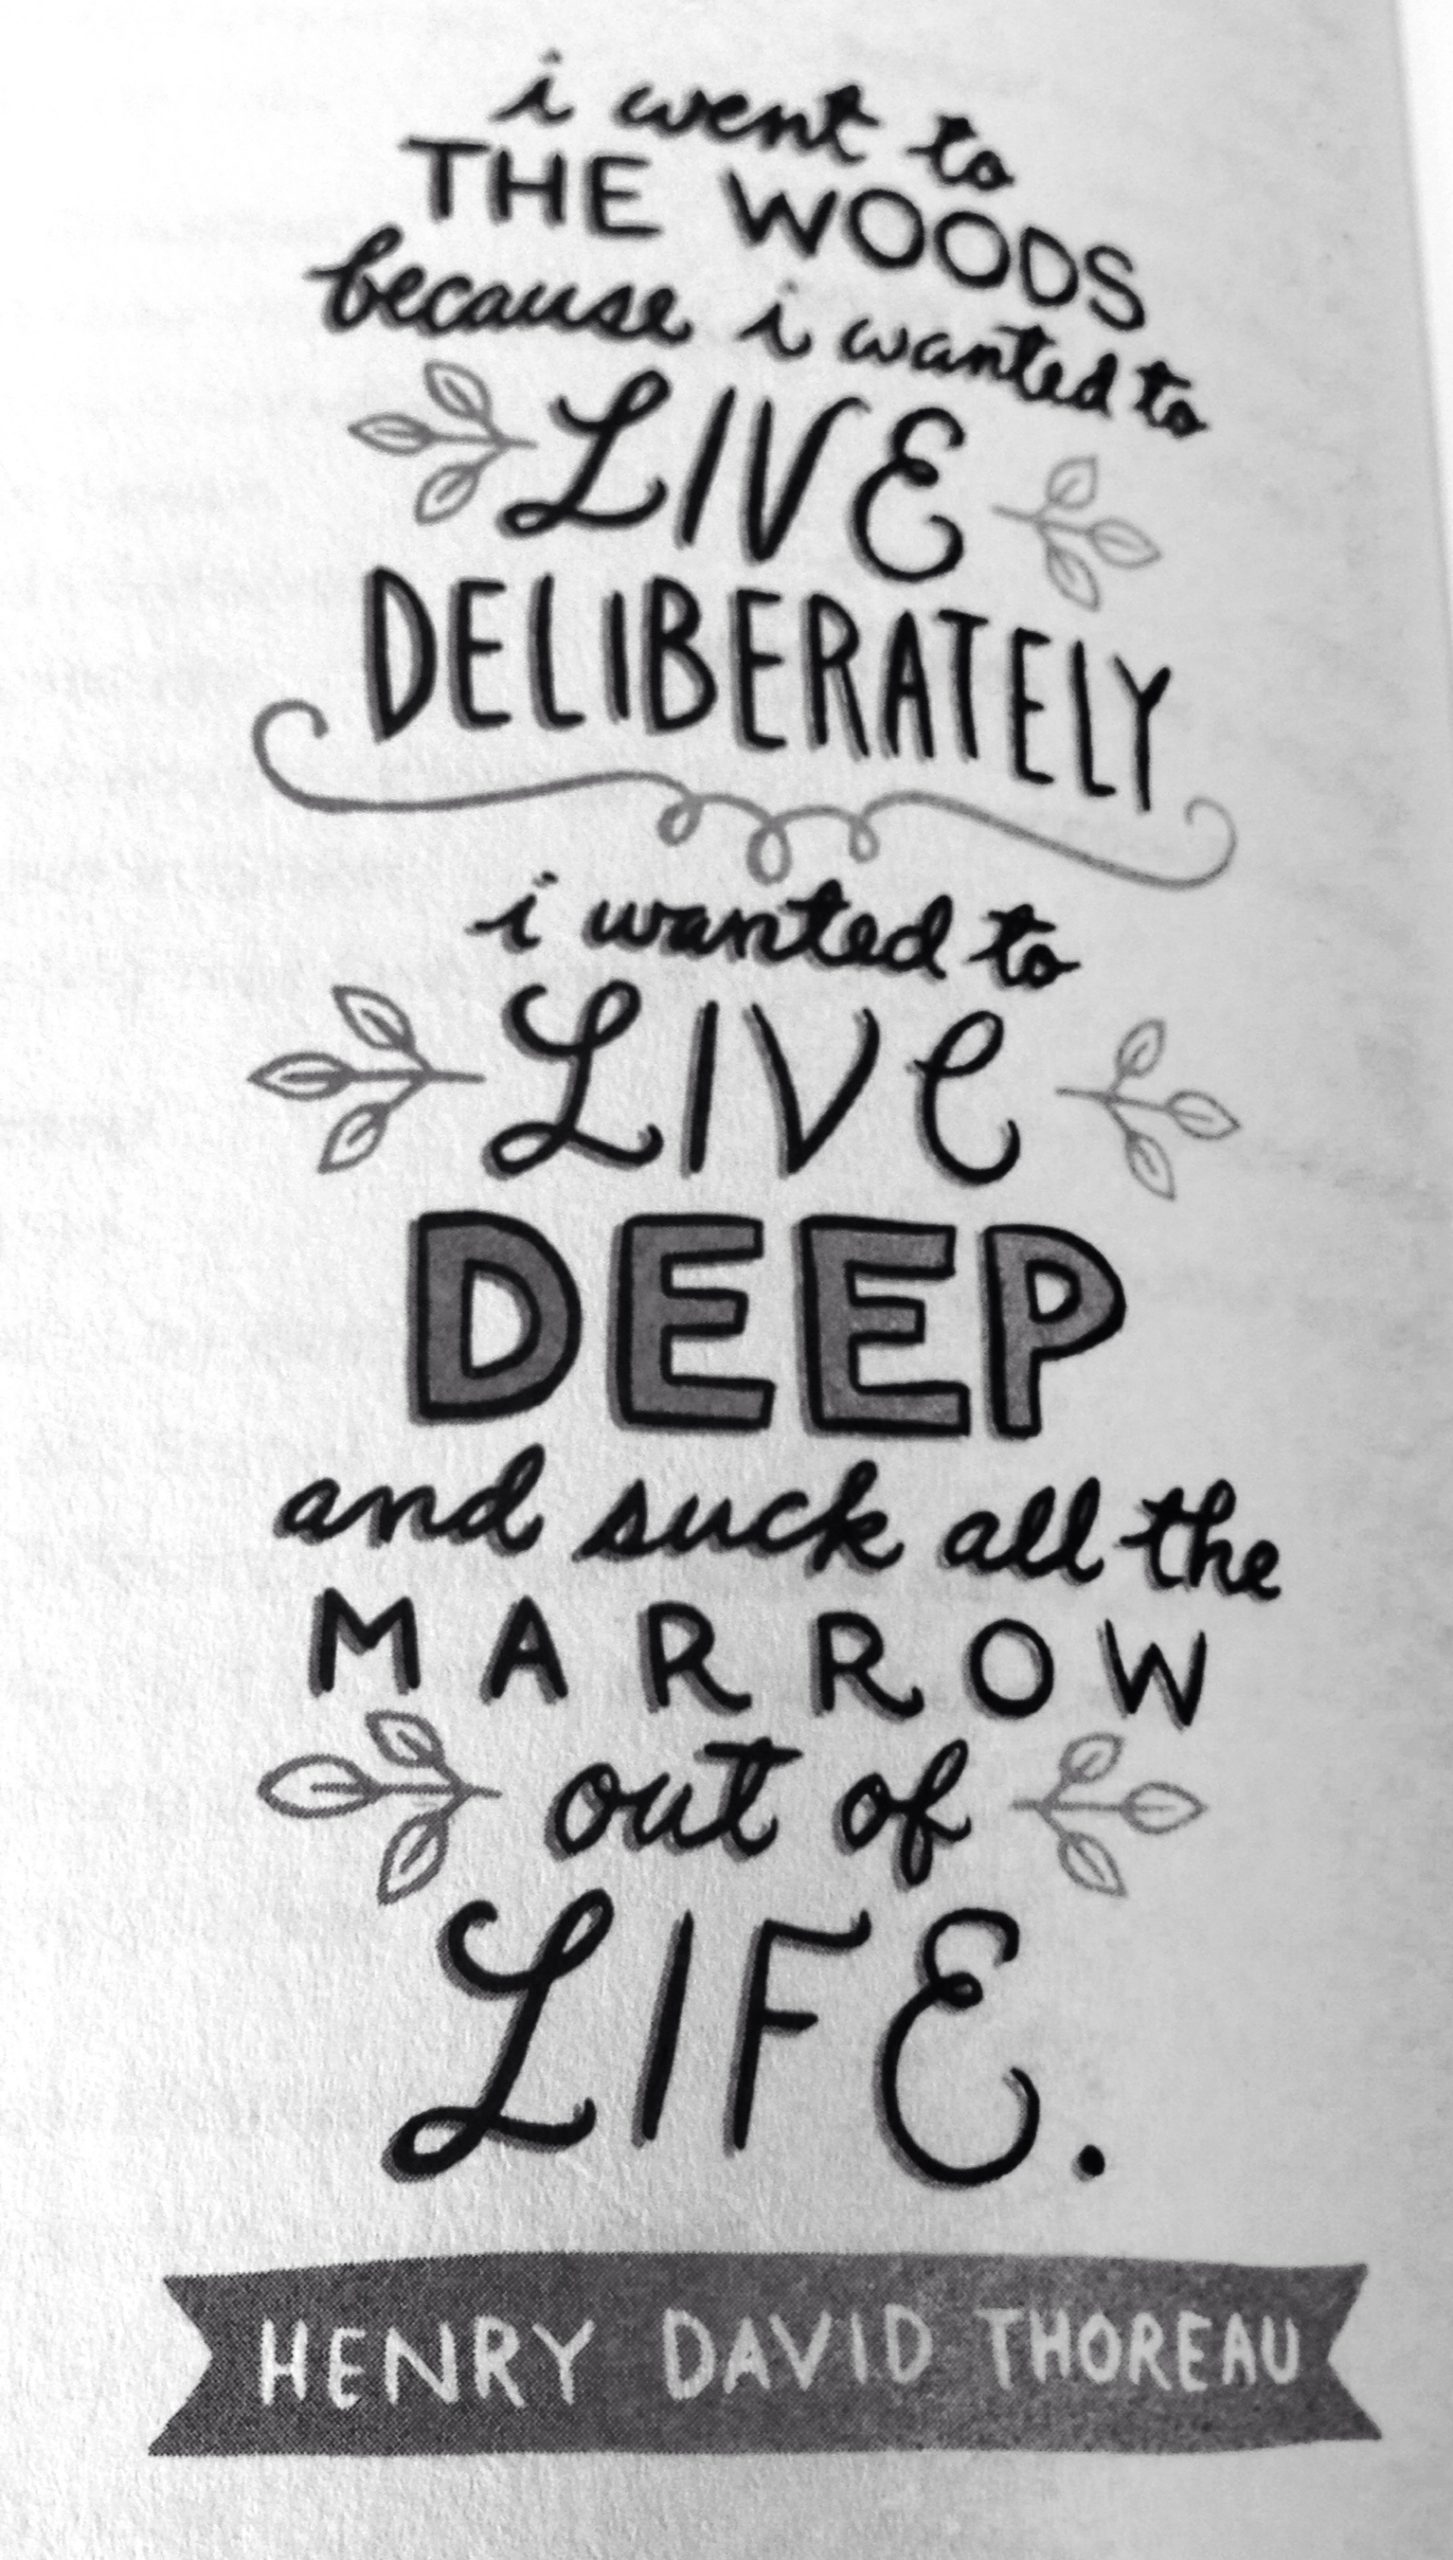 i went to
THE WOODS
because i wanted to
LIVE
DELIBERATELY
i wanted to
LIVe
DEEP
and suck all the
MARROW
out of
LIFE.
HENRY DAVID THOREAU